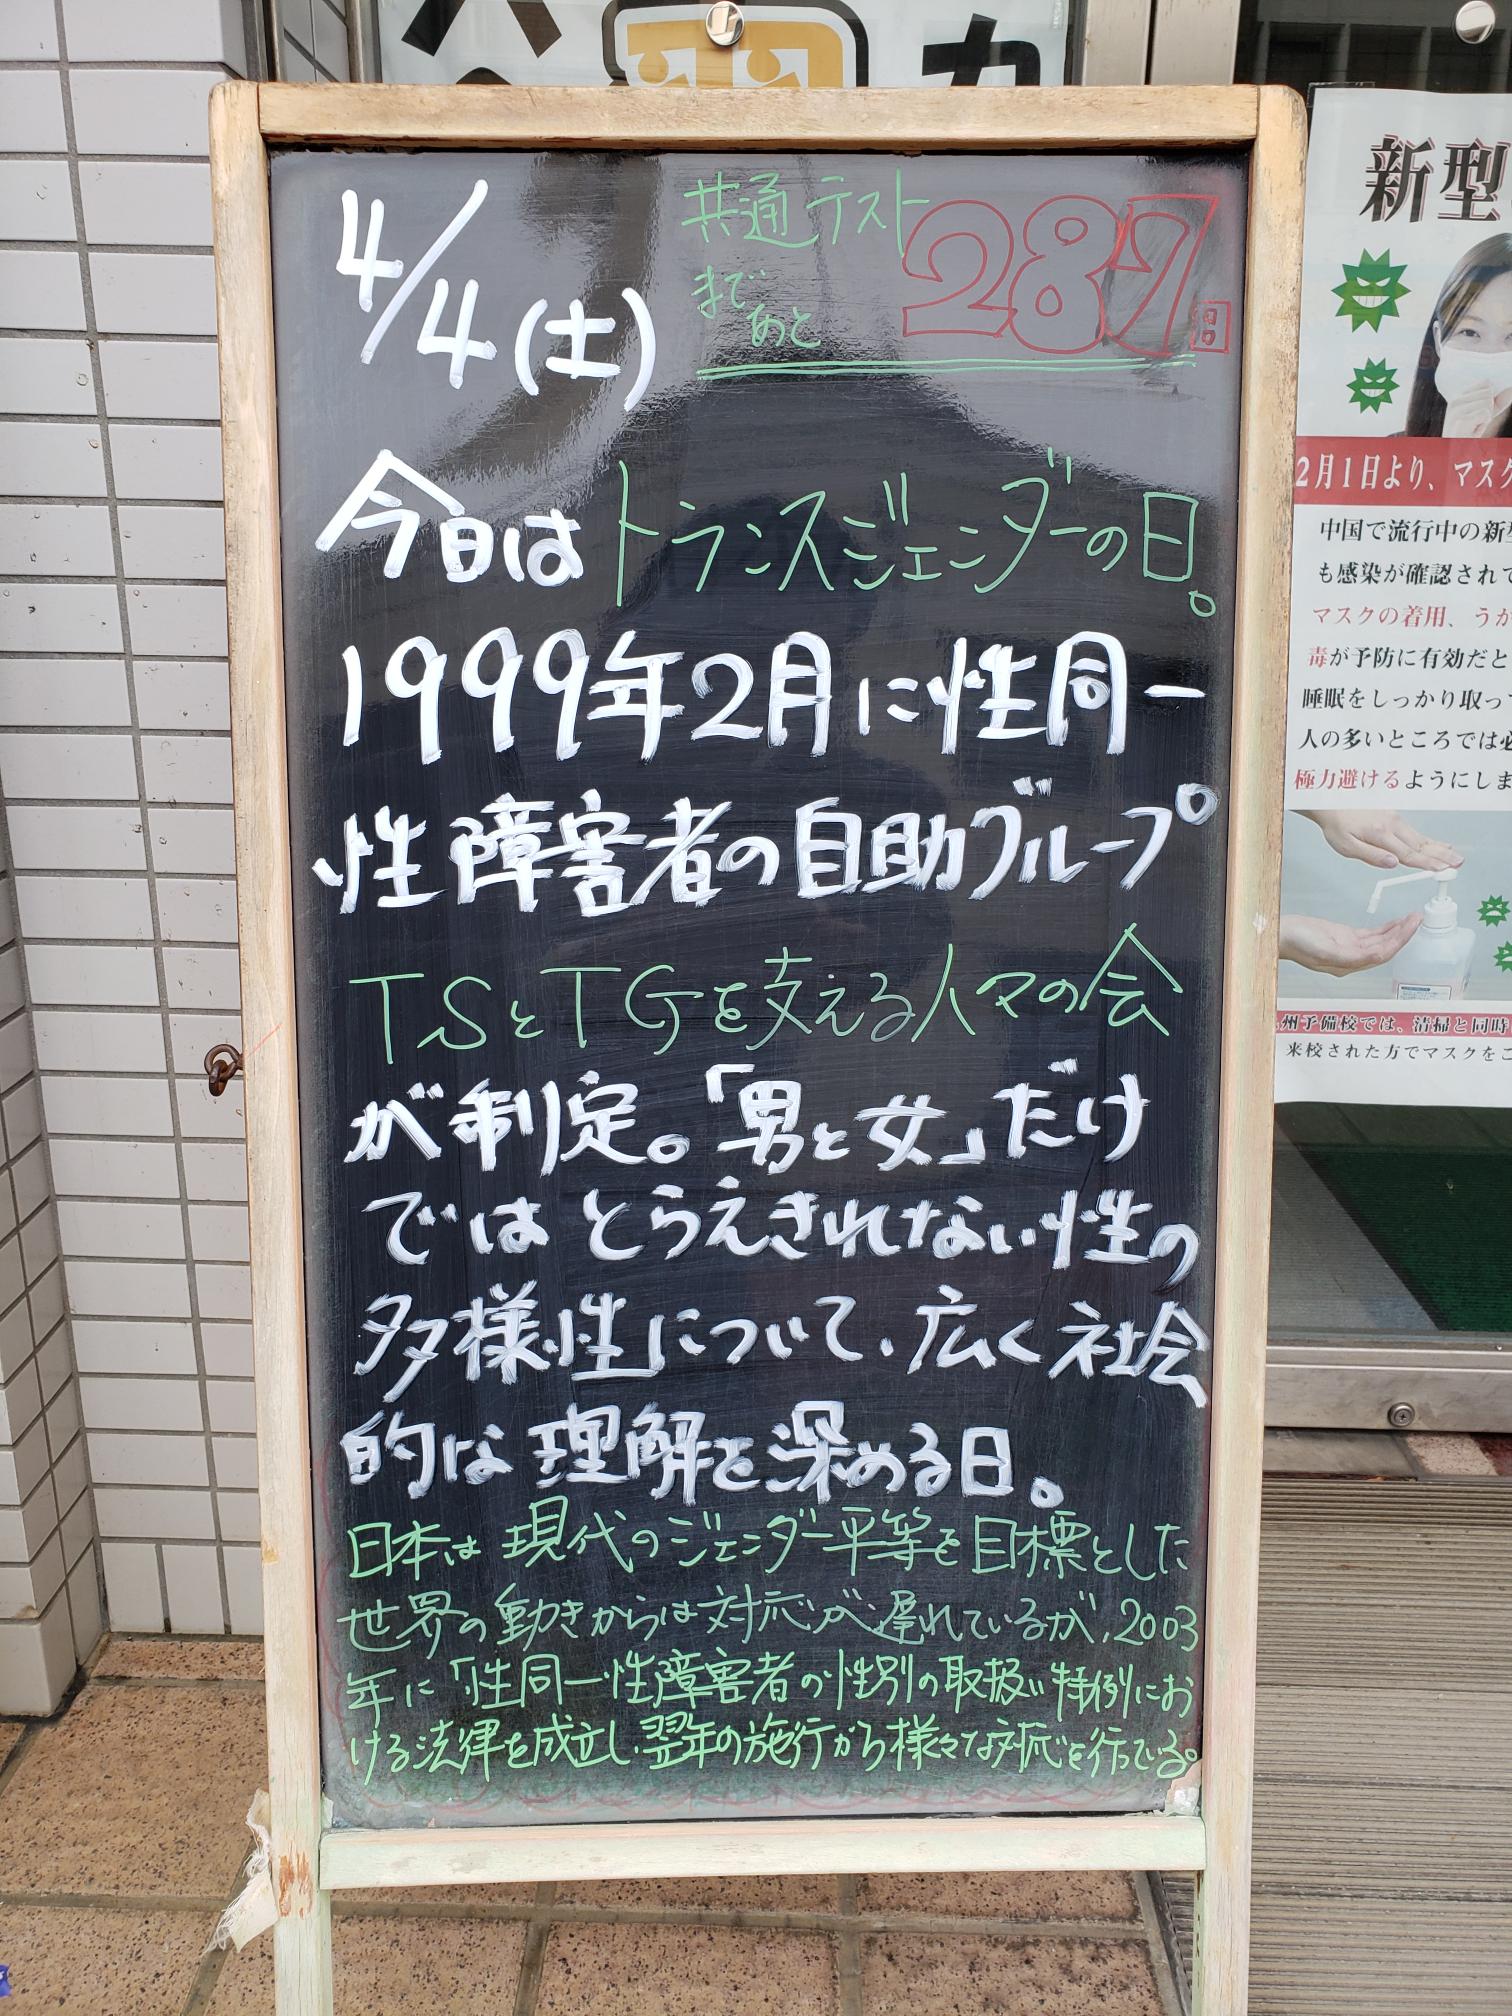 4/4(土)
共通テスト
まで
あと
287日
今日はトランスジェンダーの日。
1999年2月に性同一
性障害者の自助グループ
TSとTGを支える人々の会
が制定。「男と女」だけ
ではとらえきれない性の
多様性について、広く社会
的な理解を深める日。
日本は現代のジェンダー平等を目標とした
世界の動きからは対応が遅れているが、2003
年に「性同一性障害者の性別の取扱い特例にお
ける法律を成立し、翌年の施行から様々な対応を行っている。
新型
2月1日より、マスク
中国で流行中の新型
も感染が確認されて
マスクの着用、うが
毒が予防に有効だと
睡眠をしっかり取っ
人の多いところでは必
極力避けるようにしま
州予備校では、清掃と同時
来校された方でマスクをご